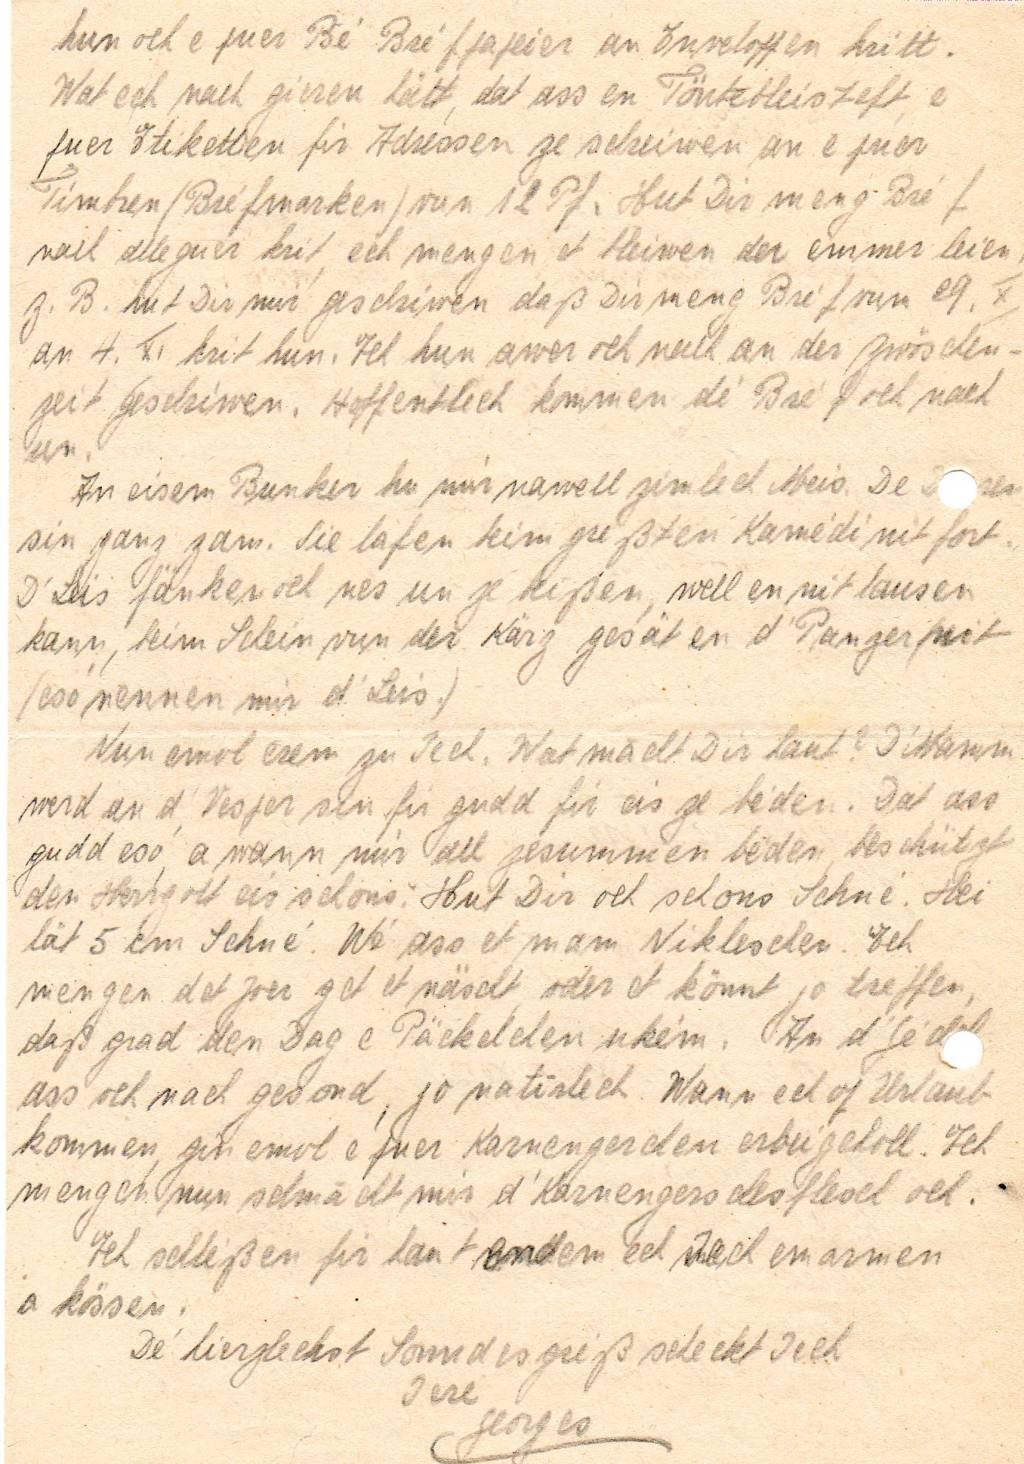 hun och e puer Bé Bréfpapeier an Enveloppen kritt.
Wat ech nach gieren hätt, dat ass en Töntebleisteft, e
puer Etiketten fir Adressen ze schreiwen an e puer
Timbren (Bréfmarken) vun 12 Pf. Hut Dir meng Bréf
nach alleguer krit, ech mengen et bleiwen der emmer leien,
z. B. hut Dir mir geschriwen daß Dir meng Bréf vun 29. X.
an 4. XI. krit hun. Ech hun awer och nach an der Zwöschen-
zeit geschriwen. Hoffentlech kommen dé Bréf och nach
un.
An eisem Bunker hu mir nawell zimlech Meis. De
sin ganz zam. Sie lafen beim gréßten Kaméidi nit fort.
D'Leis fänken och nes un ze bißen, well en nit lausen
kann, beim Schein vun der Kärz gesät en d'Panzer nit
(esó nennen mir d'Leis.)
Nun emol erem zu Iech. Wat macht Dir haut? D'Mamm
werd an d'Vesper sin fir gudd fir eis ze bieden. Dat ass
gudd esó, a wann mir all zesummen bieden, beschützt
den Herrgott eis schons. Hut Dir och schons Schné. Hei
lät 5 cm Schné. Wé ass et mam Nikleschen. Ech
mengen det Joer get et näscht oder et könnt jo treffen,
daß grad den Dag e Päckelchen ukém. An d'
ass och nach gesond, jo natirlech. Wann ech of Urlaub
kommen, gin emol e puer Karnengercher erbeigeholl. Ech
mengen, nun schmächt mir d'Karnengerchesflesch och.
Ech schleißen fir haut andem ech Iech emarmen
a kössen.
Dé hierzlechst Sonndesgréiß scheckt Iech
Iere
Georges